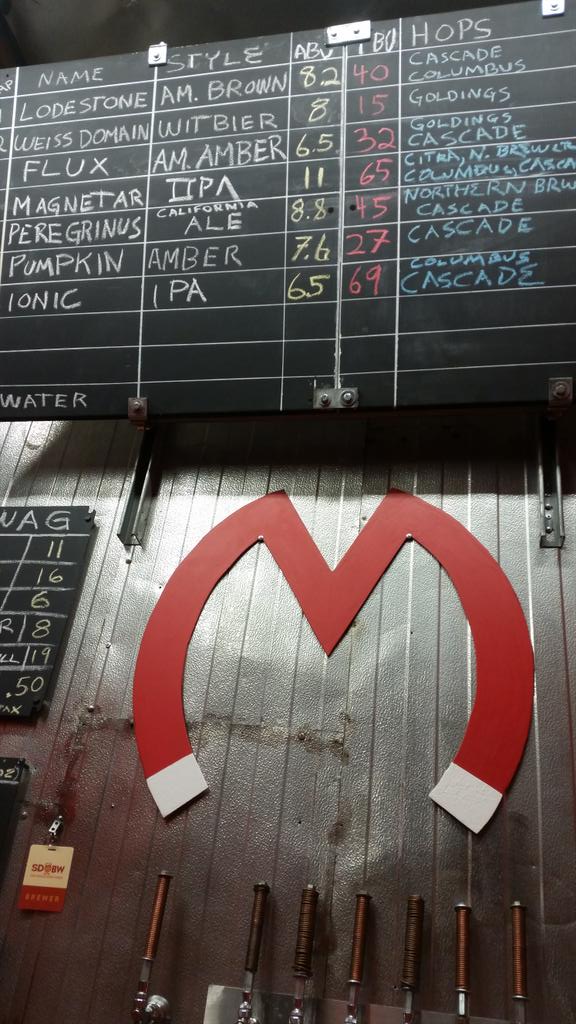 NAME STYLE ABV IBU HOPS
LODESTONE AM. BROWN 8.2 40 CASCADE COLUMBUS
WEISS DOMAIN WITBIER 8 15 GOLDINGS
FLUX AM. AMBER 6.5 32 GOLDINGS CASCADE
MAGNETAR IIPA 11 65 CITRA, N. BREWER COLUMBUS, CASCA
PEREGRINUS CALIFORNIA ALE 8.8 45 NORTHERN BRW CASCADE
PUMPKIN AMBER 7.6 27 CASCADE
IONIC IPA 6.5 69 COLUMBUS CASCADE
WATER
WAG
11
16
6
R 8
LL 19
.50
TAX
M
SD BW
BREWER